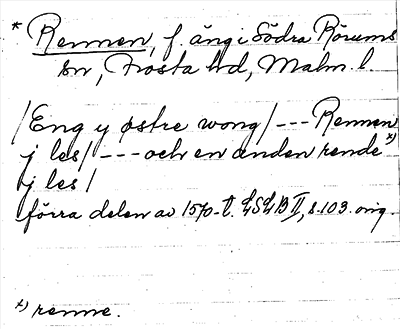 * Rennen, f. äng i Södra Rörums
sn, Frosta hd, Malm. l.
/Eng y østre wong/ --- Rennen
j les/ --- och en anden rende x)
ij les /
förra delen av 1570-t. LSLB II, s. 103. orig.
x) renne.